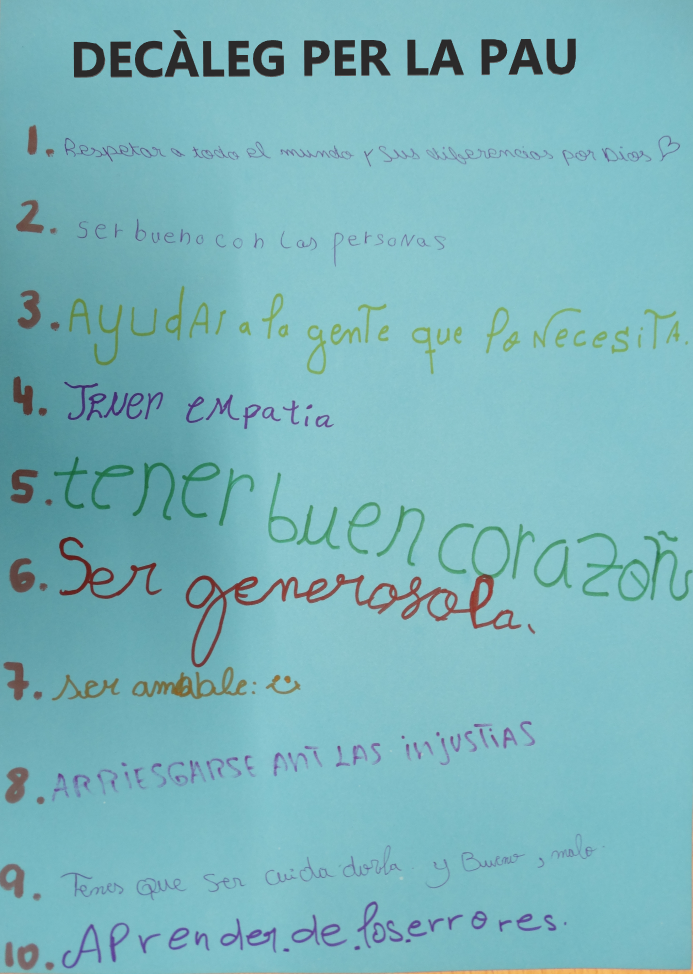 DECÀLEG PER LA PAU
1. Respetar a todo el mundo y sus diferencias por Dios ♡
2. ser bueno con las personas
3. AYUdAr a la genTe que la NecesiTA.
4. TENEr eMpatia
5. tener buen corazoñ
6. Ser generoso/a.
7. ser amable: ☺
8. ARRiESGARSE ANT LAS injusTiAS
9. Tenes que ser cuida dor/a y Bueno, malo.
10. APrender.de.los.errores.